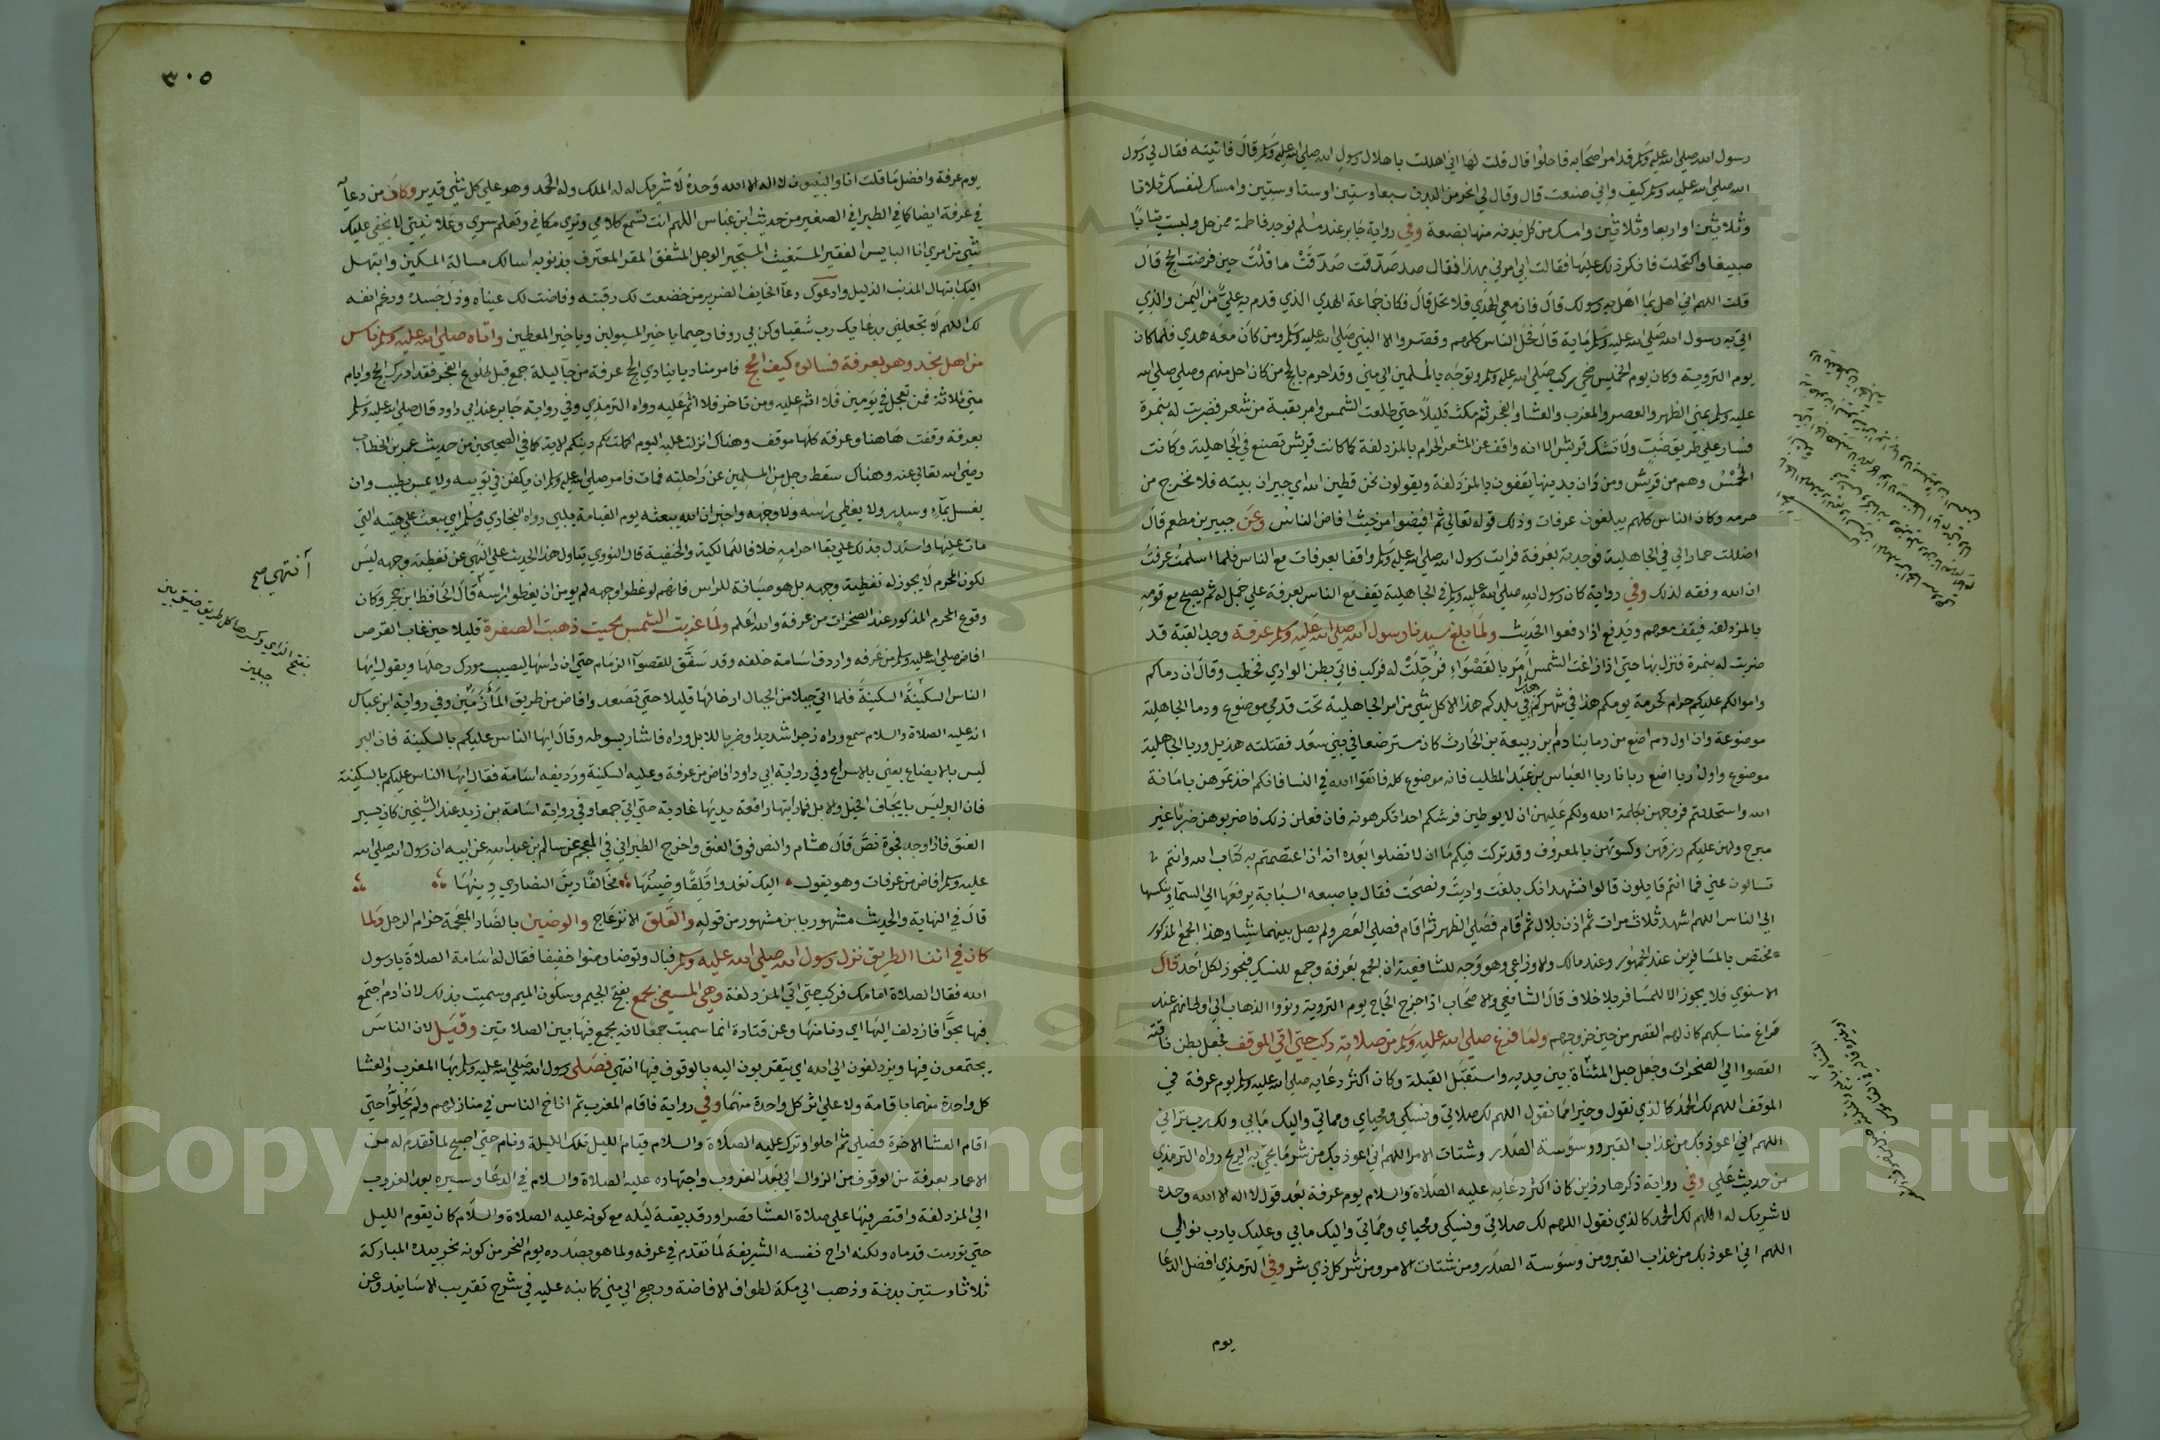 رسول الله صلى الله عليه وسلم قد امر اصحابه فاحلوا قال قلت لها اني اهللت باهلال رسول الله صلى الله عليه وسلم قال فاتيته فقال لي رسول
الله صلى الله عليه وسلم كيف صنعت قال وقال لي انحر من البدن سبعا وستين او ستا وستين وامسك لنفسك ثلاثا
وثلاثين او اربعا وثلاثين وامسك من كل بدنه منها بضعة وفي رواية جابر عند مسلم فوجد فاطمة ممن حل ولبست ثيابا
صبيغا واكتحلت فانكر ذلك عليها فقالت ابي امرني بهذا فقال صدقت صدقت ما قلت حين فرضت الحج قال
قلت اللهم اني اهل بما اهل به رسولك قال فان معي الهدي فلا تحل قال فكان جماعة الهدي الذي قدم به علي من اليمن والذي
اتي به رسول الله صلى الله عليه وسلم ماية قال فحل الناس كلهم وقصروا الا النبي صلى الله عليه وسلم ومن كان معه هدي فلما كان
يوم التروية وكان يوم الخميس ضحي ركب صلى الله عليه وسلم وتوجه بالمسلمين الي مني وقد احرم بالحج من كان احل منهم وصلي صلى الله
عليه وسلم بمني الظهر والعصر والمغرب والعشا والفجر ثم مكث قليلا حتي طلعت الشمس وامر بقبة من شعر فضربت له بنمرة
فسار علي طريق ضب ولا تشك قريش الا انه واقف عند المشعر الحرام بالمزدلفة كما كانت قريش تصنع في الجاهلية وكانت
الحمس وهم من قريش ومن دان بدينها يقفون بالمزدلفة ويقولون نحن قطين الله اي جيران بيته فلا نخرج من
حرمه وكان الناس كلهم يبلغون عرفات وذلك قوله تعالي ثم افيضوا من حيث افاض الناس وعن جبير بن مطعم قال
اضللت حمارا لي في الجاهلية فوجدته بعرفة فرايت رسول الله صلى الله عليه وسلم واقفا بعرفات مع الناس فلما اسلمت عرفت
ان الله وفقه لذلك وفي رواية كان رسول الله صلى الله عليه وسلم في الجاهلية يقف مع الناس بعرفة علي جمل له ثم يصبح مع قومه
بالمزدلفه فيقف معهم ويدفع اذا دفعوا الحديث ولما بلغ سيدنا رسول الله صلى الله عليه وسلم عرفة وجد القبة قد
ضربت له بنمرة فنزل بها حتي اذا زاغت الشمس امر بالقصواء فرحلت له فركب فاتي بطن الوادي فخطب وقال ان دماكم
واموالكم عليكم حرام كحرمة يومكم هذا في شهركم هذا في بلدكم هذا الا كل شي من امر الجاهلية تحت قدمي موضوع ودما الجاهلية
موضوعة وان اول دم اضع من دماينا دم ابن ربيعة بن الحارث كان مسترضعا في بني سعد فقتلته هذيل وربا الجاهلية
موضوع واول ربا اضع ربانا ربا العباس بن عبد المطلب فانه موضوع كله فاتقوا الله في النسا فانكم اخذتموهن بامانة
الله واستحللتم فروجهن بكلمة الله ولكم عليهن ان لا يوطين فرشكم احدا تكرهونه فان فعلن ذلك فاضربوهن ضربا غير
مبرح ولهن عليكم رزقهن وكسوتهن بالمعروف وقد تركت فيكم ما ان لا تضلوا بعده انه ان اعتصمتم به كتاب الله وانتم
تسالون عني فما انتم قايلون قالوا نشهد انك بلغت واديت ونصحت فقال باصبعه السبابة يرفعها الي السمآ وينكسها
الي الناس اللهم اشهد ثلاث مرات ثم اذن بلال ثم اقام فصلي الظهر ثم اقام فصلي العصر ولم يصل بينهما شيا وهذا الجمع المذكور
مختص بالمسافرين عند الجمهور وعند مالك والاوزاعي وهو وجه للشافعية ان الجمع بعرفة وجمع للنسك فيجوز لكل احد قال
الاسنوي فلا يجوز الا للمسافر بلا خلاف قال الشافعي والاصحاب اذا خرج الحاج يوم التروية ونووا الذهاب الي اوطانهم عند
فراغ مناسكهم كان لهم القصر من حين خروجهم ولما فرغ صلى الله عليه وسلم من صلاته ركب حتي اتي الموقف فجعل بطن ناقته
القصوا الي الصخرات وجعل حبل المشاة بين يديه واستقبل القبلة وكان اكثر دعايه صلى الله عليه وسلم يوم عرفة في
الموقف اللهم لك الحمد كالذي نقول وخيرا مما نقول اللهم لك صلاتي ونسكي ومحياي ومماتي واليك مابي ولك رب تراثي
اللهم اني اعوذ بك من عذاب القبر ووسوسة الصدر وشتات الامر اللهم اني اعوذ بك من شر ما يجي به الريح رواه الترمذي
من حديث علي وفي رواية ذكرها رزين كان اكثر دعايه عليه الصلاة والسلام يوم عرفة بعد قول لا اله الا الله وحده
لا شريك له اللهم لك الحمد كالذي نقول اللهم لك صلاتي ونسكي ومحياي ومماتي واليك مابي وعليك يا رب ثوابي
اللهم اني اعوذ بك من عذاب القبر ومن وسوسة الصدر ومن شتات الامر ومن شر كل ذي شر وفي الترمذي افضل الدعا
يوم
٣٠٥
يوم عرفة وافضل ما قلت انا والنبيون لا اله الا الله وحده لا شريك له له الملك وله الحمد وهو علي كل شي قدير وكان من دعآ
في عرفة ايضا كما في الطبراني الصغير من حديث ابن عباس اللهم انت تسمع كلامي وتري مكاني وتعلم سري وعلانيتي لا يخفي عليك
شي من امري انا البايس الفقير المستغيث المستجير الوجل المشفق المقر المعترف بذنوبه اسالك مسالة المسكين وابتهل
اليك ابتهال المذنب الذليل وادعوك دعآ الخايف الضرير من خضعت لك رقبته وفاضت لك عيناه وذل جسده ورغم انفه
لك اللهم لا تجعلني بدعايك رب شقيا وكن بي روفا رحيما يا خير المسيولين ويا خير المعطين واتاه صلى الله عليه وسلم ناس
من اهل نجد وهو بعرفة فسالوه كيف الحج فامر مناديا ينادي الحج عرفة من جآ ليلة جمع قبل طلوع الفجر فقد ادرك الحج وايام
مني ثلاثة فمن تعجل في يومين فلا اثم عليه ومن تاخر فلا اثم عليه رواه الترمذي وفي رواية جابر عند ابي داود قال صلى الله عليه وسلم
بعرفة وقفت هاهنا وعرفه كلها موقف وهناك انزلت عليه اليوم اكملت لكم دينكم الاية كما في الصحيحين من حديث عمر بن الخطاب
رضي الله تعالي عنه وهناك سقط رجل من المسلمين عن راحلته فمات فامر صلى الله عليه وسلم ان يكفن في ثوبيه ولا يمس بطيب وان
يغسل بمآء وسدر ولا يغطي راسه ولا وجهه واخبر ان الله يبعثه يوم القيامة يلبي رواه البخاري ومسلم اي يبعث علي هيئته التي
مات عليها واستدل بذلك علي بقا احرامه خلافا للمالكية والحنفية قال النووي يتاول هذا الحديث علي النهي عن تغطية وجهه ليس
لكون المحرم لا يجوز له تغطية وجهه بل هو صيانة للراس فانهم لو غطوا وجهه لم يومن ان يغطوا راسه قال الحافظ ابن حجر وكان
وقوع المحرم المذكور عند الصخرات من عرفة والله اعلم ولما غربت الشمس بحيث ذهبت الصفرة قليلا حين غاب القرص
افاض صلى الله عليه وسلم من عرفه واردف اسامة خلفه وقد شنق للقصوآ الزمام حتي ان راسها ليصيب مورك رحلها ويقول ايها
الناس السكينة السكينة فلما اتي جبلا من الجبال ارخا لها قليلا حتي تصعد وافاض من طريق المأزمين وفي رواية ابن عباس
انه عليه الصلاة والسلام سمع وراه زجرا شديدا وضربا للابل وراه فاشار بسوطه وقال ايها الناس عليكم بالسكينة فان البر
ليس بالايضاع يعني بالاسراع وفي رواية ابي داود افاض من عرفة وعليه السكينة ورديفه اسامة فقال ايها الناس عليكم بالسكينة
فان البر ليس بايجاف الخيل والابل فما رايتها رافعة يديها غادية حتي اتي جمعا وفي رواية اسامة بن زيد عند الشيخين كان يسير
العنق فاذا وجد فجوة نص قال هشام والنص فوق العنق واخرج الطبراني في المعجم عن سالم بن عبد الله عن ابيه ان رسول الله صلى الله
عليه وسلم افاض من عرفات وهو يقول اليك تغدوا قلقا وضينها مخالفا دين النصاري دينها
قال في النهاية والحديث مشهور بابن مشهور من قوله والقلق الانزعاج والوضين بالضاد المعجمة حزام الرحل ولما
كان في اثنا الطريق نزل رسول الله صلى الله عليه وسلم فبال وتوضا وضوا خفيفا فقال له اسامة الصلاة يا رسول
الله فقال الصلاة امامك فركب حتي اتي المزدلفة وهي المسمي بجمع بفتح الجيم وسكون الميم وسميت بذلك لان ادم اجتمع
فيها بحوا فازدلف اليها اي دنا منها وعن قتادة انما سميت جمعا لانه يجمع فيها بين الصلاتين وقيل لان الناس
يجتمعون فيها ويزدلفون الي الله اي يتقربون اليه بالوقوف فيها انتهي فصلي رسول الله صلى الله عليه وسلم بها المغرب والعشا
كل واحدة منهما باقامة ولا علي اثر كل واحدة منهما وفي رواية فاقام المغرب ثم اناخ الناس في منازلهم ولم يحلوا حتي
اقام العشا الاخرة فصلي ثم احلوا وترك عليه الصلاة والسلام قيام الليل تلك الليلة ونام حتي اصبح لما تقدم له من
الاعمال بعرفة من الوقوف من الزوال الي بعد الغروب واجتهاده عليه الصلاة والسلام في الدعا وسيره بعد الغروب
الي المزدلفة واقتصر فيها علي صلاة العشا قصرا ورقد بقية ليله مع كونه عليه الصلاة والسلام كان يقوم الليل
حتي تورمت قدماه ولكنه اراح نفسه الشريفة لما تقدم في عرفه ولما هو بصدده يوم النحر من كونه نحر بيده المباركة
ثلاثا وستين بدنة وذهب الي مكة لطواف الافاضة ورجع الي مني كما نبه عليه في شرح تقريب الاسانيد وعن
انتهي صح
بفتح الزاي وكسرها كل طريق ضيق بين
جبلين
Copyright © King Saud University
1957